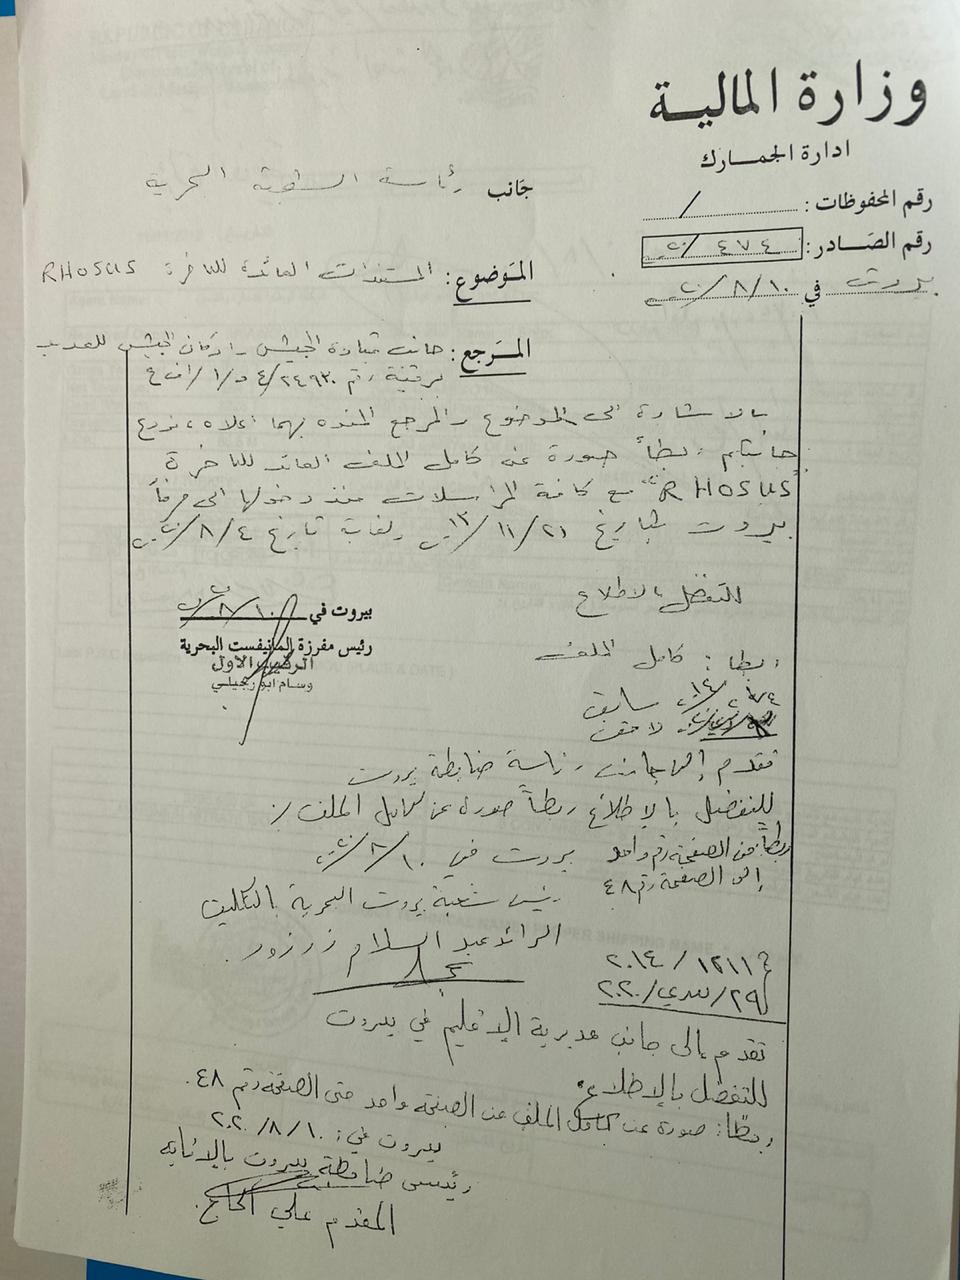 وزارة المالية
ادارة الجمارك
رقم المحفوظات : /
رقم الصادر : ٤٧٤ / ٢٠
بيروت في ١٠/٨/٢٠
جانب رئاسة الشعبة البحرية
الموضوع : المستندات العائدة للباخرة RHOSUS
المرجع : جانب قيادة الجيش - اركان الجيش للعمليات
برقية رقم
بالاشارة الى الموضوع والمرجع المنوه بهما اعلاه ، نودع
جانبكم ربطاً صورة عن كامل الملف العائد للباخرة
"RHOSUS" مع كافة المراسلات منذ دخولها الى مرفأ
بيروت بتاريخ ٢١/١١/١٣ ولغاية تاريخ ٤/٨/٢٠
للتفضل بالاطلاع
بيروت في ١٠/٨/٢٠
رئيس مفرزة المانيفست البحرية
الرقيب الاول
وسام ابو رجيلي
ربطا : كامل الملف
سابق
لاحق
تقدم إلى جانب رئاسة ضابطة بيروت
للتفضل بالاطلاع ربطاً صورة عن كامل الملف
ربطاً: من الصفحة رقم واحد
إلى الصفحة رقم ٤٨
بيروت في ١٠/٨/٢٠
رئيس شعبة بيروت البحرية بالتكليف
الرائد عبد السلام زرزور
١٢١١ / ٢٠١٤
٢٩/سري/٢٠٢٠
تقدم إلى جانب مديرية الإقليم في بيروت
للتفضل بالإطلاع
ربطًا: صورة عن كامل الملف من الصفحة واحد حتى الصفحة رقم ٤٨.
بيروت في: ١٠/٨/٢٠٢٠
رئيس ضابطة بيروت بالإنابة
المقدم علي الحاج.